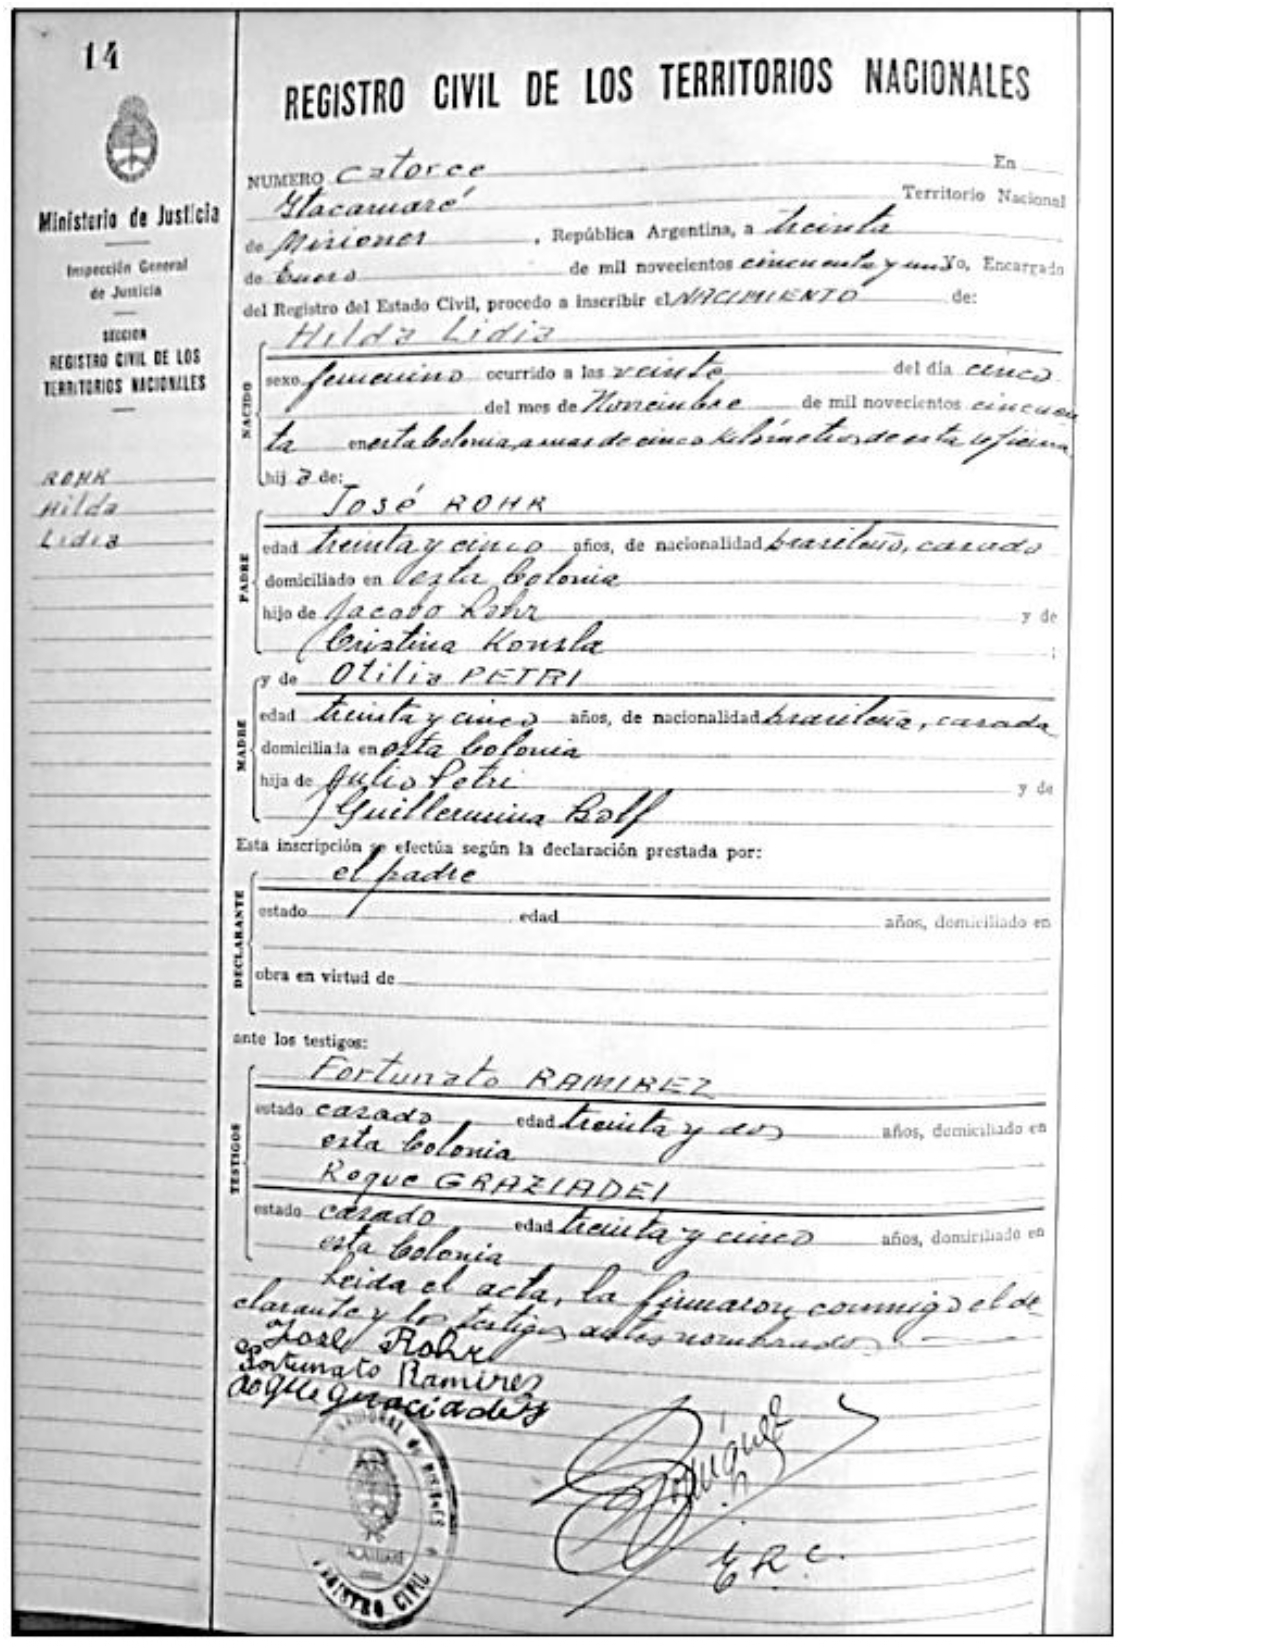 14
REGISTRO CIVIL DE LOS TERRITORIOS NACIONALES
Ministerio de Justicia
Inspección General
de Justicia
SECCION
REGISTRO CIVIL DE LOS
TERRITORIOS NACIONALES
ROHR
Hilda
Lidia
NUMERO catorce En
Itacaruaré Territorio Nacional
de Misiones , República Argentina, a treinta
de Enero de mil novecientos cincuenta y uno Yo, Encargado
del Registro del Estado Civil, procedo a inscribir el NACIMIENTO de:
Hilda Lidia
NACIDO
sexo femenino ocurrido a las veinte del día cinco
del mes de Noviembre de mil novecientos cincuen
ta en esta Colonia, a mas de cinco kilómetros de esta oficina
hij a de:
José ROHR
PADRE
edad treinta y cinco años, de nacionalidad brasileño, casado
domiciliado en esta Colonia
hijo de Jacobo Rohr y de
Cristina ;
y de Otilia PETRI
MADRE
edad treinta y cinco años, de nacionalidad brasileña, casada
domiciliada en esta Colonia
hija de Julio Petri y de
Guillermina
Esta inscripción se efectúa según la declaración prestada por:
el padre
DECLARANTE
estado edad años, domiciliado en
obra en virtud de
ante los testigos:
Fortunato RAMIREZ
TESTIGOS
estado casado edad treinta y dos años, domiciliado en
esta Colonia
Roque GRAZIADEI
estado casado edad treinta y cinco años, domiciliado en
esta Colonia
Leida el acta, la firmaron conmigo el de
clarante y los testigos antes nombrados
José Rohr
Fortunato Ramirez
Roque
REGISTRO CIVIL
E.R.C.